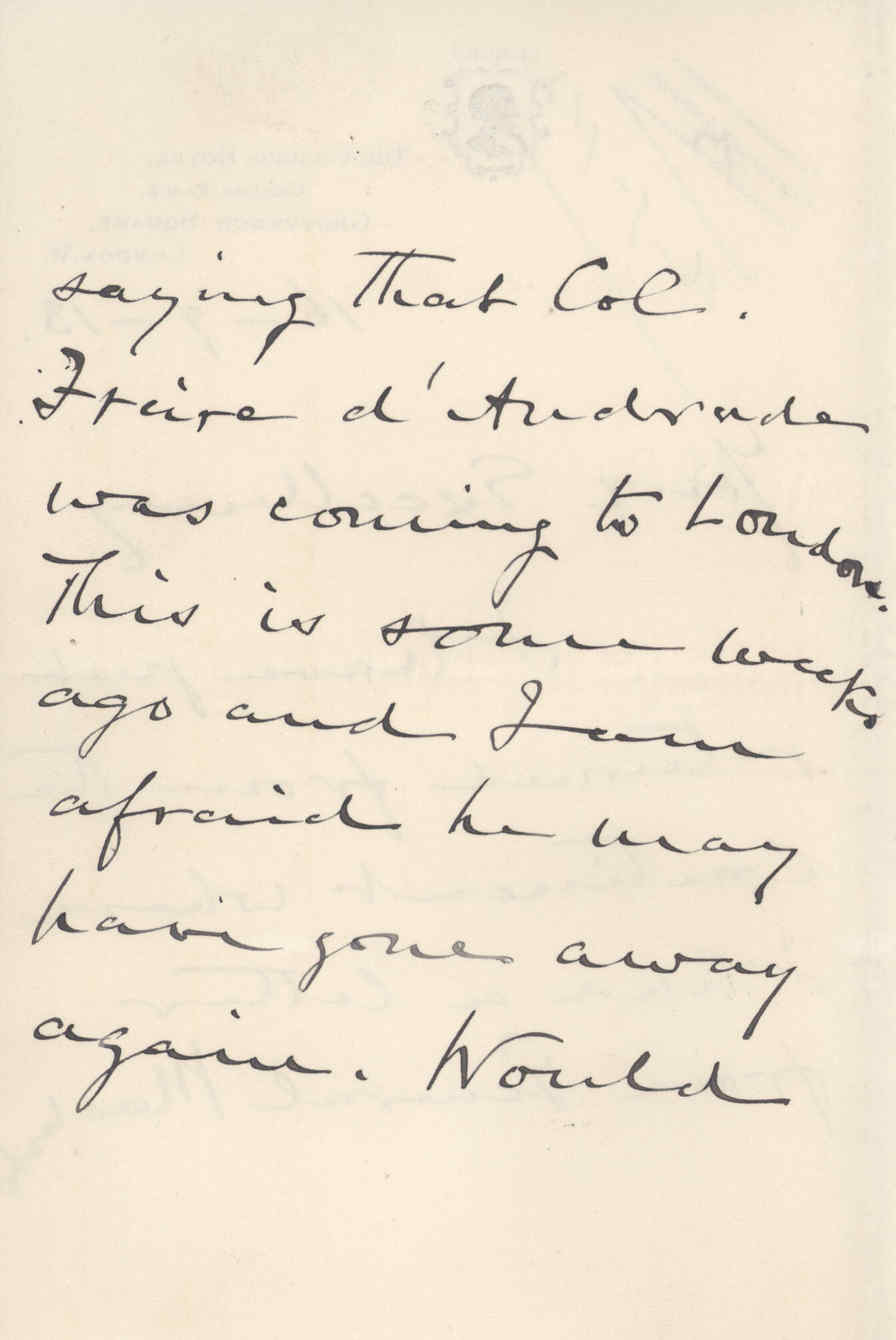 saying that Col.
Freire d'Andrade
was coming to London.
This is some weeks
ago and I am
afraid he may
have gone away
again. Would